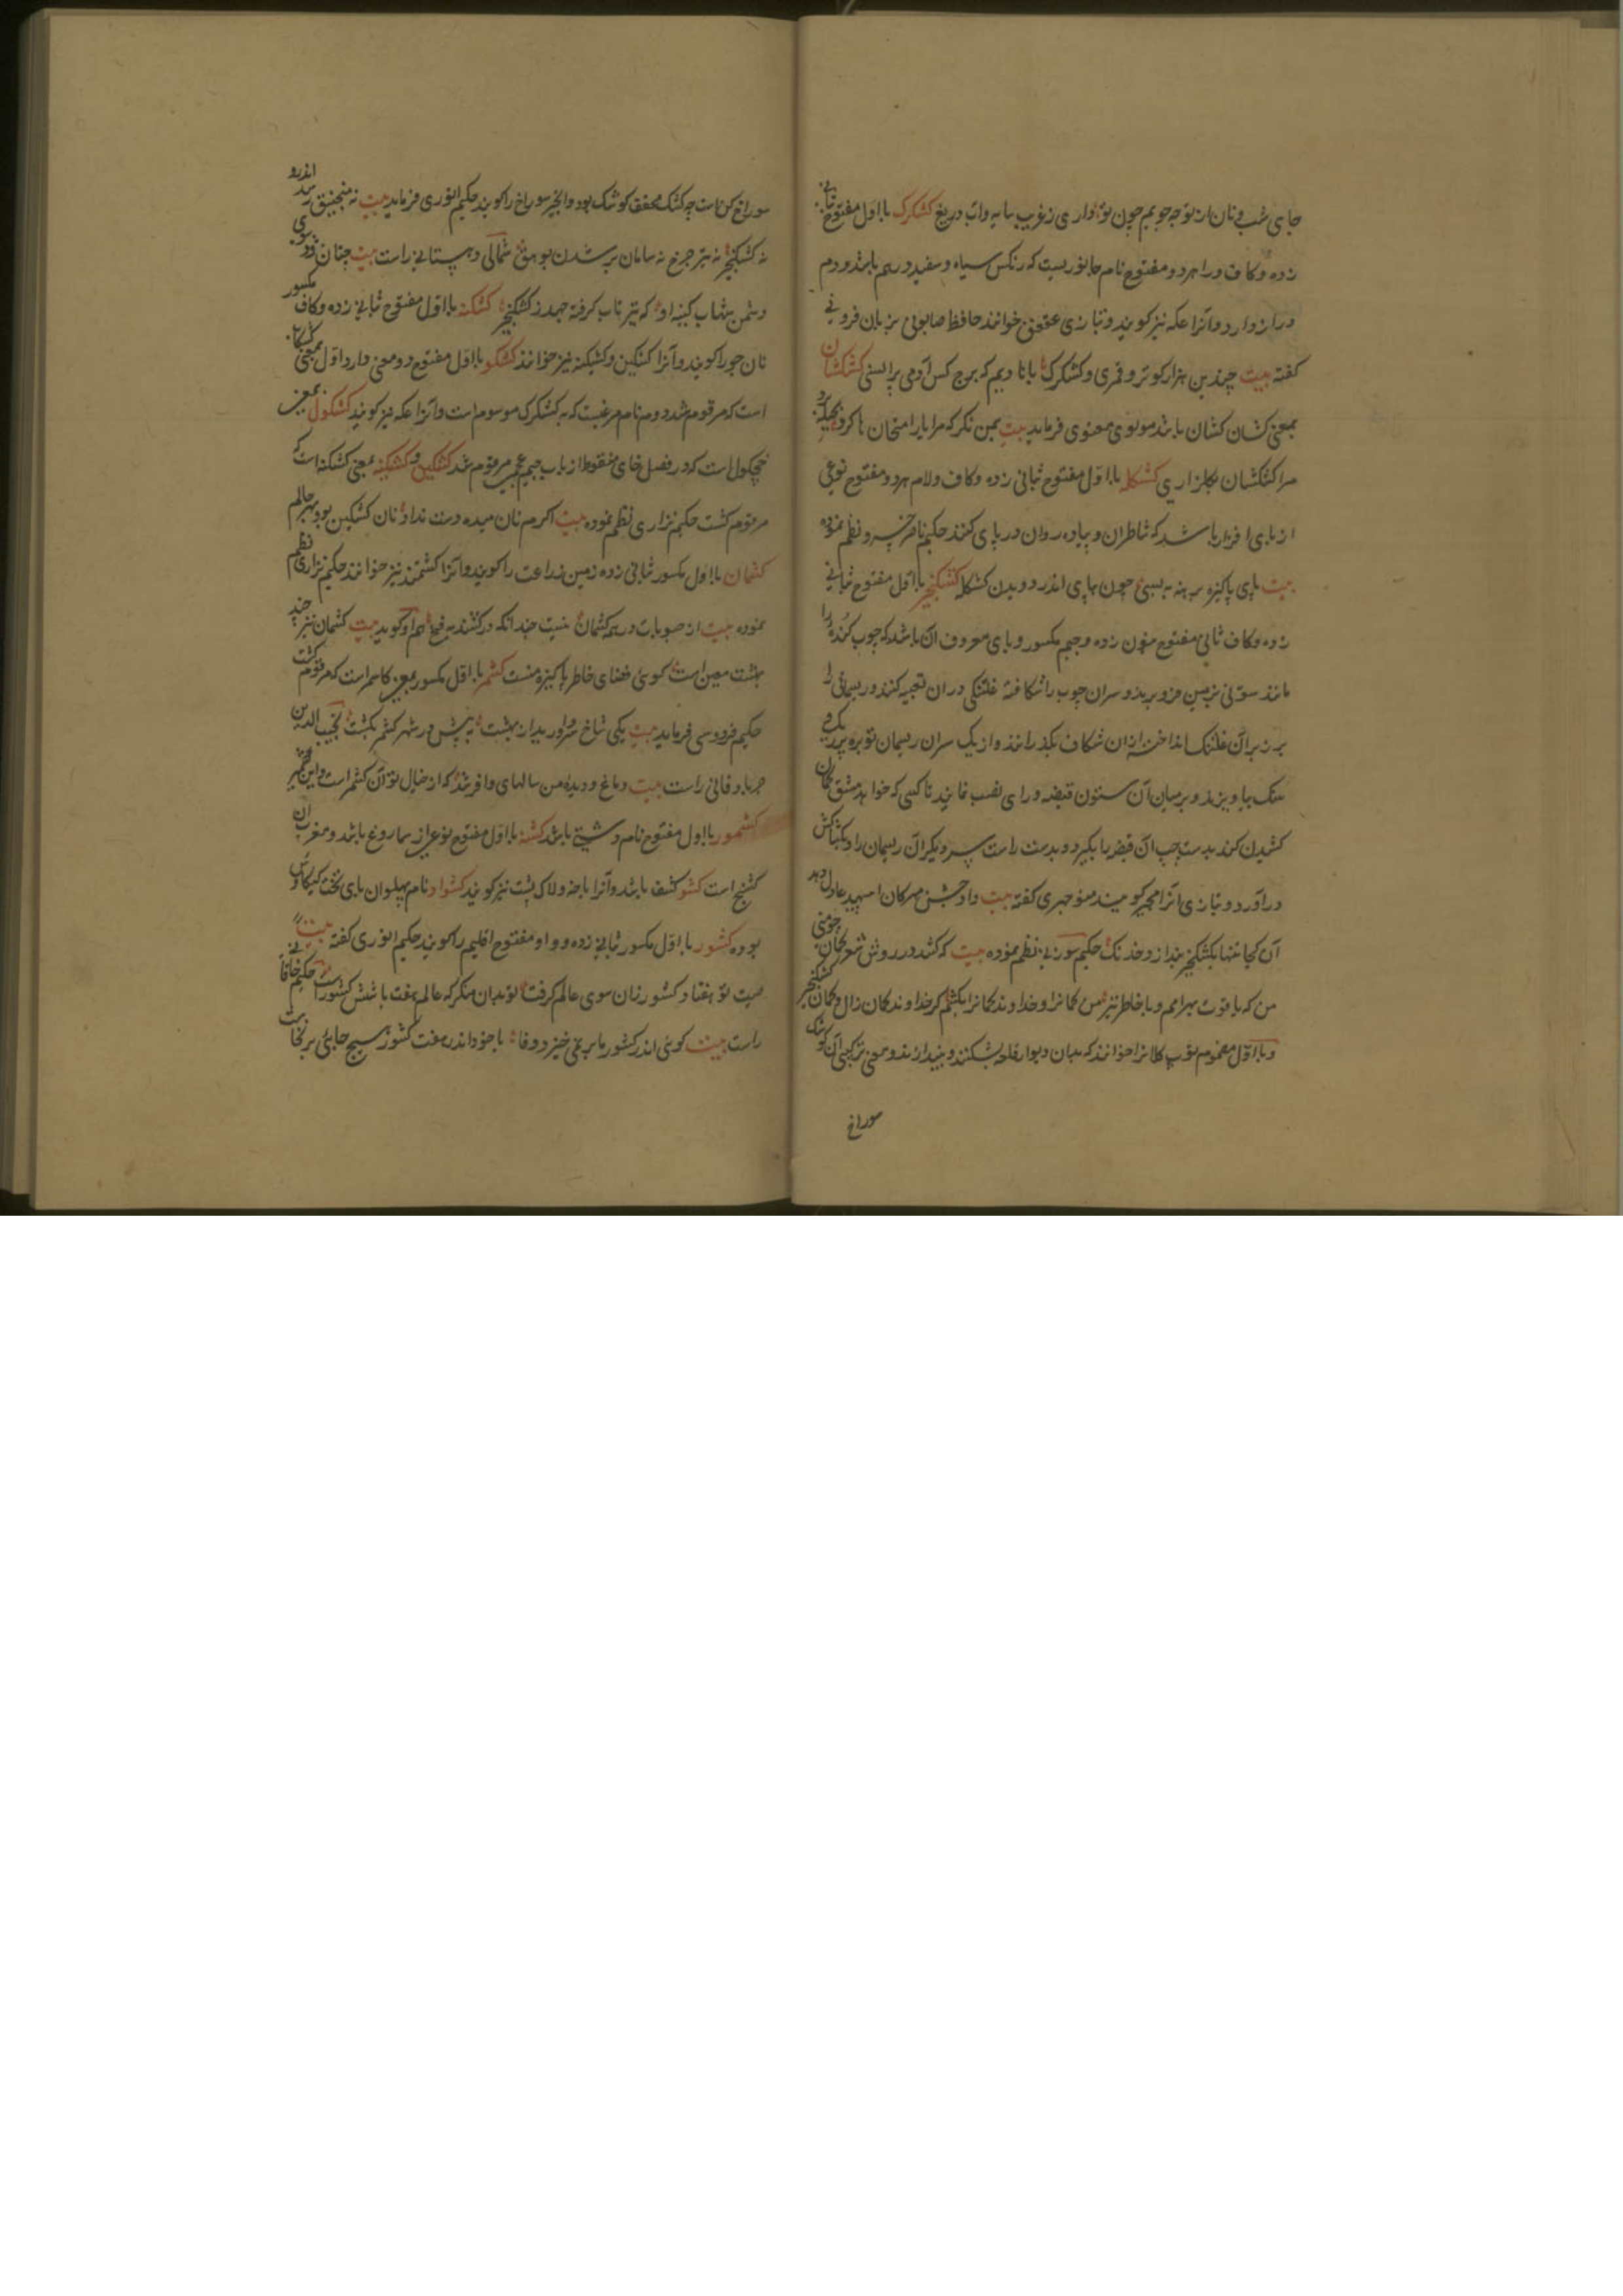 جای شب و نان از تو چه جویم چون تو داری ز غریب سایه و آب دریغ کشکرک با اول مفتوح بثانی
زده و کاف و را هر دو مفتوح نام جانوریست که رنکش سیاه و سفید درهم باشد و دم
دراز دارد و آنرا عکه نیز کویند و بتازی عقعق خوانند حافظ صابونی بزبان قزوینی
کفته بیت چندین هزار کوتر و قمری و کشکرک
بمعنی کشان کشان باشد مولوی معنوی فرماید بیت بمن نکر که مرا یار امتحان ها کرد بحیله برد
مرا کشکشان بکلزاری کشکله با اول مفتوح بثانی زده و کاف و لام هر دو مفتوح نوعی
از پای افزار باشد که شاطران و پیاده روان در پای کنند حکیم ناصر خسرو نظم نموده
بیت پای پاکیزه برهنه به بسی چون بپای اندر دویدن کشکله کشکنجیر با اول مفتوح بثانی
زده و کاف ثانی مفتوح بنون زده و جیم مکسور و یای معروف آن باشد که چوب کنده را
مانند ستونی بزمین فرو برند و سر آن چوب را شکافته غلتکی در آن تعبیه کنند و ریسمانی را
بر زبر آن غلتک انداخته از آن شکاف بکذرانند و از یک سر آن ریسمان توبره پر ریک و
سنک بیاویزند و بر میان آن ستون قبضه ورای نصب نمایند تا کسی که خواهد مشق کمان
کشیدن کند بدست چپ آن قبضه را بکیرد و بدست راست سر دیکر آن ریسمان را و بکشاکش
درآورد و بتازی آنرا کویند منوچهری کفته بیت داد جشن مهرکان اسپهبد عادل دهد
آن کجا تنها بکشکنجیر بندازد خدنک حکیم سوزنی نظم نموده بیت که کشد در روش شعر کمان چو منی
من که با قوت بهرامم و با خاطر تیر
و با اول مضموم توپ کلانرا خوانند که بدان دیوار قلعه بشکنند و بیندازند و معنی ترکیبی آن کوشک
سوراخ
سوراخ کن است چه کشک مخفف کوشک بود و انجیر سوراخ را کویند حکیم انوری فرماید بیت نه منجنیق رسد اندرو
نه کشکنجیر نه تیر چرخ نه سامان بر شدن بوهق شمالی دهستانی راست بیت چنان رود سوی
دشمن شهاب کینه او که تیر تاب کرفته جهد ز کشکنجیر کشکنه با اول مفتوح بثانی زده و کاف مکسور
نان جو را کویند و آنرا کشکین و کشکینه نیز خوانند کشکو با اول مفتوح دو معنی دارد اول بمعنی کشکاب
است که مرقوم شد دوم نام مرغیست که به کشکرک موسوم است و آنرا عکه نیز کویند کشکول بمعنی
خچکول است که در فصل خای منقوط از باب جیم عجمی مرقوم شد کشکین و کشکینه بمعنی کشکنه است که
مرقوم کشت حکیم نزاری نظم نموده بیت اکرم نان میده دست نداد نان کشکین بود بهر حالم
کشمان با اول مکسور ثانی زده زمین زراعت را کویند و آنرا کشتمند نیز خوانند حکیم نزاری نظم
نموده بیت از حبوبات در همه کشمان نیست چندانکه در کشند به فم هم او کوید بیت کشمان نیز چند
بهشت معین است کوئی فضای خاطر پاکیزه منست کشمر با اول مکسور بمعنی کاشمر است که مرقوم کشت
حکیم فردوسی فرماید بیت یکی شاخ سرو آورید از بهشت به پیش در شهر کشمر بکشت نجیب الدین
جربادقانی راست بیت دماغ و دیده من سالهای وافر شد که از خیال تو آن کشمر است و این کشمیر
کشمور با اول مفتوح نام دشتی باشد کشنه با اول مفتوح نوعی از سماروغ باشد و معرب آن
کشنج است کشو کشف باشد و آنرا باخه و لاک پشت نیز کویند کشواد نام پهلوان پای تخت کیکاؤس
بوده کشور با اول مکسور بثانی زده و واو مفتوح اقلیم را کویند حکیم انوری کفته بیت نی
صیت تو هفتاد کشور زان سوی عالم کرفت تو بدان منکر که عالم هفت یا شش کشور است حکیم خاقانی
راست بیت کوئی اندر کشور ما بر نمی خیزد وفا یا خود اندر هفت کشور هیچ جایی بر نخاست